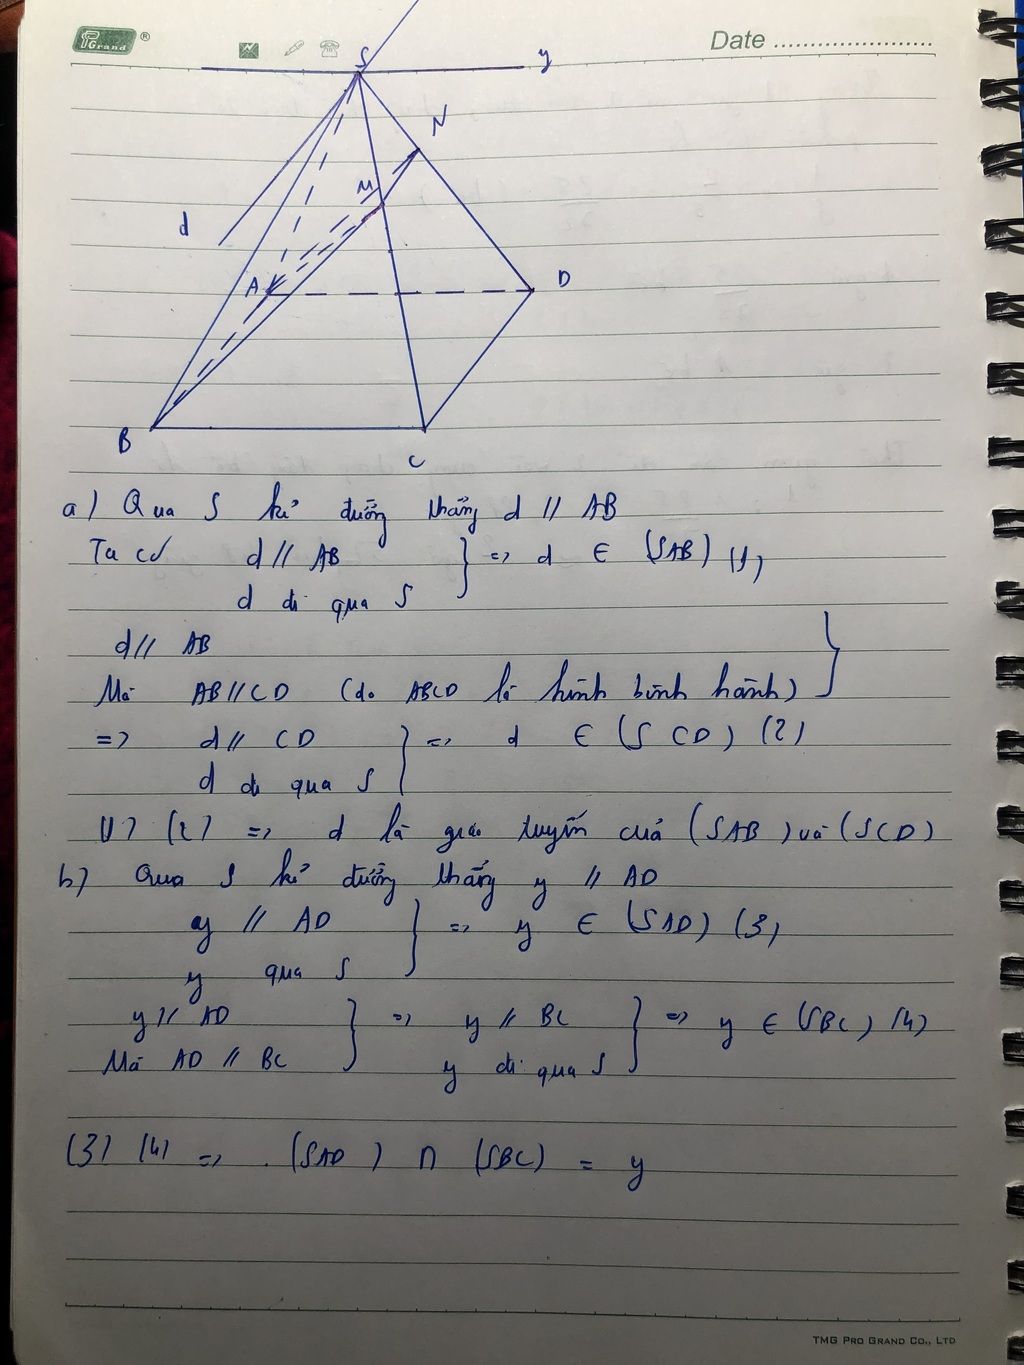 PGrand ®
Date ......................
S
y
N
M
d
A
D
B
C
a) Qua S kẻ đường thẳng d // AB
Ta có d // AB } => d ∈ (SAB) (1)
d đi qua S
d // AB
Mà AB // CD (do ABCD là hình bình hành) }
=> d // CD } => d ∈ (SCD) (2)
d đi qua S
(1) (2) => d là giao tuyến của (SAB) và (SCD)
b) Qua S kẻ đường thẳng y // AD
y // AD } => y ∈ (SAD) (3)
y qua S
y // AD } => y // BC } => y ∈ (SBC) (4)
Mà AD // BC y đi qua S
(3) (4) => (SAD) ∩ (SBC) = y
TMG PRO GRAND CO., LTD